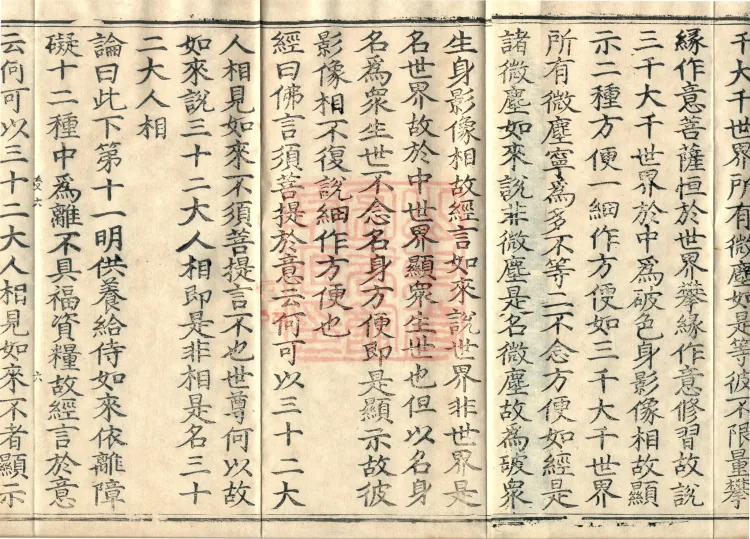 千大千世界所有微塵如是等彼不限量攀
緣作意菩薩恒於世界攀緣作意修習故說
三千大千世界於中為破色身影像相故顯
示二種方便一細作方便如三千大千世界
所有微塵寧為多不等二不念方便如經是
諸微塵如來說非微塵是名微塵故為破衆
生身影像相故經言如來說世界非世界是
名世界故於中世界顯衆生世也但以名身
名為衆生世不念名身方便即是顯示故彼
影像相不復說細作方便也
經曰佛言須菩提於意云何可以三十二大
人相見如來不須菩提言不也世尊何以故
如來說三十二大人相即是非相是名三十
二大人相
論曰此下第十一明供養給侍如來依離障
礙十二種中為離不具福資糧故經言於意
云何可以三十二大人相見如來不者顯示
六